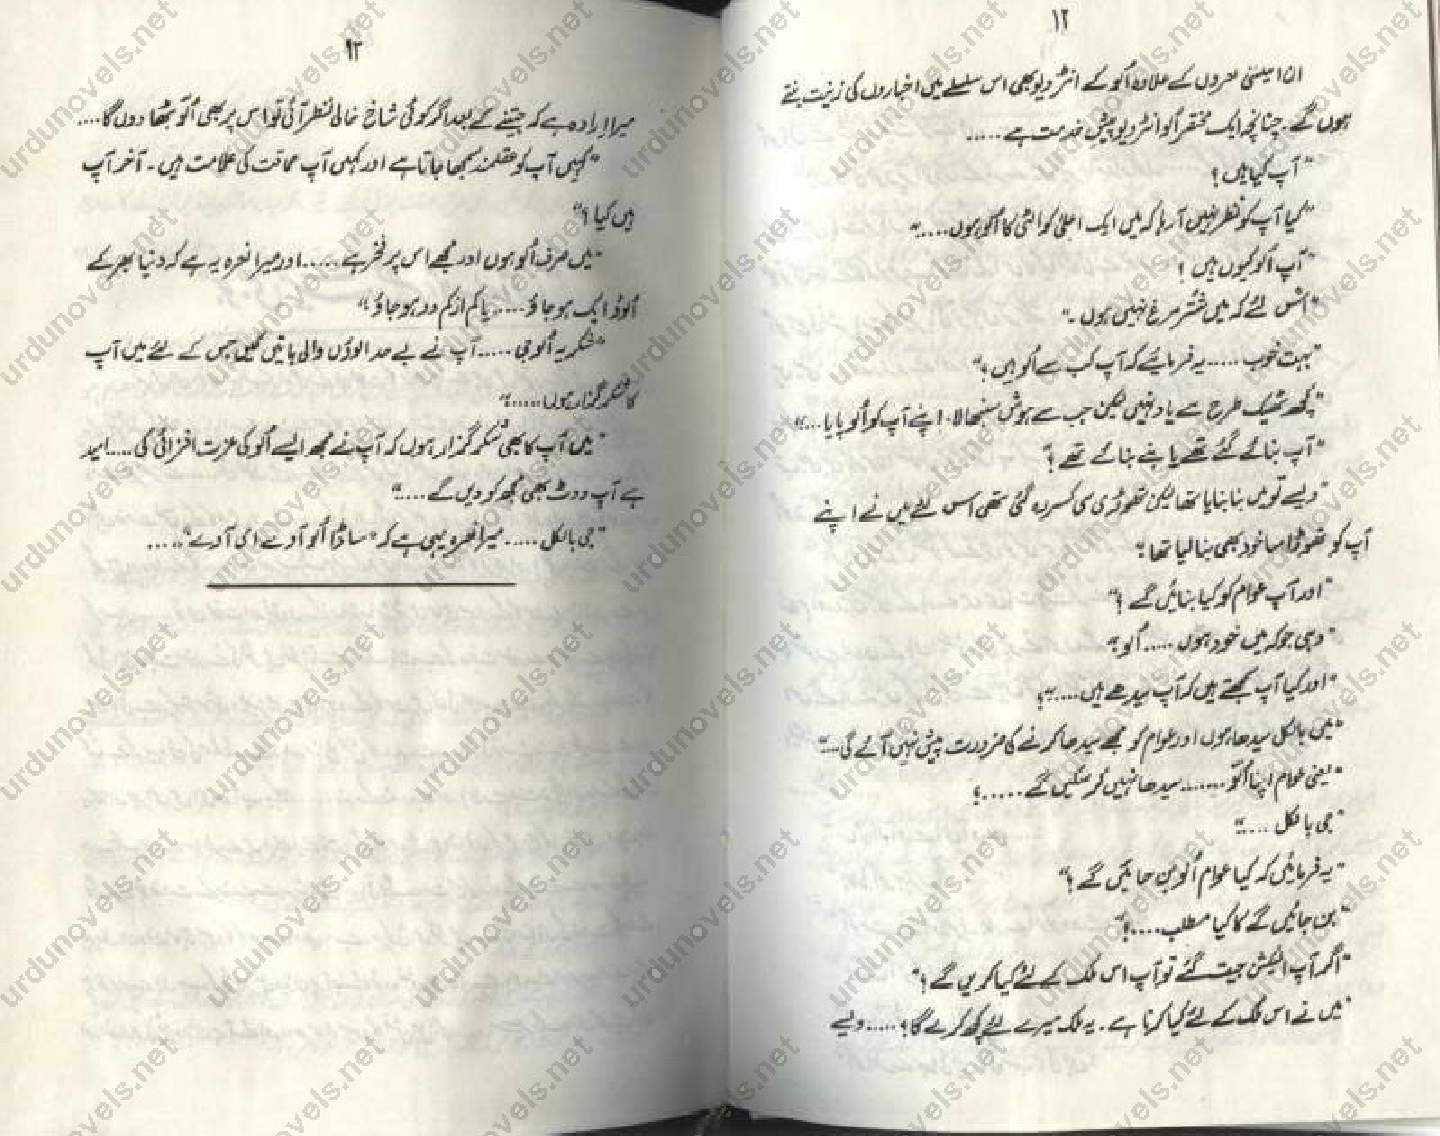 ۱۲
ان الیکشنی نعروں کے علاوہ اُلو کے انٹرویو بھی اس سلسلے میں اخباروں کی زینت بنتے
ہوں گے، چنانچہ ایک مختصر اُلو انٹرویو پیش خدمت ہے .....
"آپ کیا ہیں؟
"کیا آپ کو نظر نہیں آ رہا کہ میں ایک اعلیٰ کوالٹی کا اُلو ہوں ....."
"آپ اُلو کیوں ہیں؟
"اس لئے کہ میں شتر مرغ نہیں ہوں۔"
"بہت خوب ..... یہ فرمایئے کہ آپ کب سے اُلو ہیں؟"
"کچھ ٹھیک طرح سے یاد نہیں لیکن جب سے ہوش سنبھالا، اپنے آپ کو اُلو پایا ...."
"آپ بنائے گئے تھے یا بنے بنائے تھے؟"
"ویسے تو میں بنا بنایا تھا لیکن تھوڑی سی کسر رہ گئی تھی اس لئے میں نے اپنے
آپ کو تھوڑا سا خود بھی بنا لیا تھا"
"اور آپ عوام کو کیا بنائیں گے؟"
"وہی جو کہ میں خود ہوں ..... اُلو"
"اور کیا آپ سمجھتے ہیں کہ آپ سیدھے ہیں ....؟"
"میں بالکل سیدھا ہوں اور عوام کو مجھے سیدھا کرنے کی ضرورت پیش نہیں آئے گی ...."
"یعنی عوام اپنا اُلو ....... سیدھا نہیں کر سکیں گے .....؟
"جی بالکل ...."
"یہ فرمائیں کہ کیا عوام اُلو بن جائیں گے؟"
"بن جائیں گے کا کیا مطلب ....؟"
"اگر آپ الیکشن جیت گئے تو آپ اس ملک کے لئے کیا کریں گے؟"
"میں نے اس ملک کے لئے کیا کرنا ہے۔ یہ ملک میرے لئے کچھ کرے گا؟ ..... ویسے
۹۳
میرا ارادہ ہے کہ جیتنے کے بعد اگر کوئی شاخ خالی نظر آئی تو اس پر بھی اُلو بٹھا دوں گا ....
"کہیں آپ کو عقلمند سمجھا جاتا ہے اور کہیں آپ حماقت کی علامت ہیں۔ آخر آپ
ہیں کیا؟"
"میں صرف اُلو ہوں اور مجھے اس پر فخر ہے ..... اور میرا نعرہ یہ ہے کہ دنیا بھر کے
اُلوؤ ایک ہو جاؤ ..... یا کم از کم دو ہو جاؤ"
"شکریہ اُلو جی ..... آپ نے بے حد الوؤں والی باتیں کیں جس کے لئے میں آپ
کا شکر گزار ہوں ....."
"میں آپ کا بھی شکر گزار ہوں کہ آپ نے مجھ ایسے اُلو کی عزت افزائی کی .... امید
ہے آپ ووٹ بھی مجھ کو دیں گے ....."
"جی بالکل ..... میرا نعرہ یہی ہے کہ "ساڈا اُلو آوے ای آوے" .....
urdunovels.net